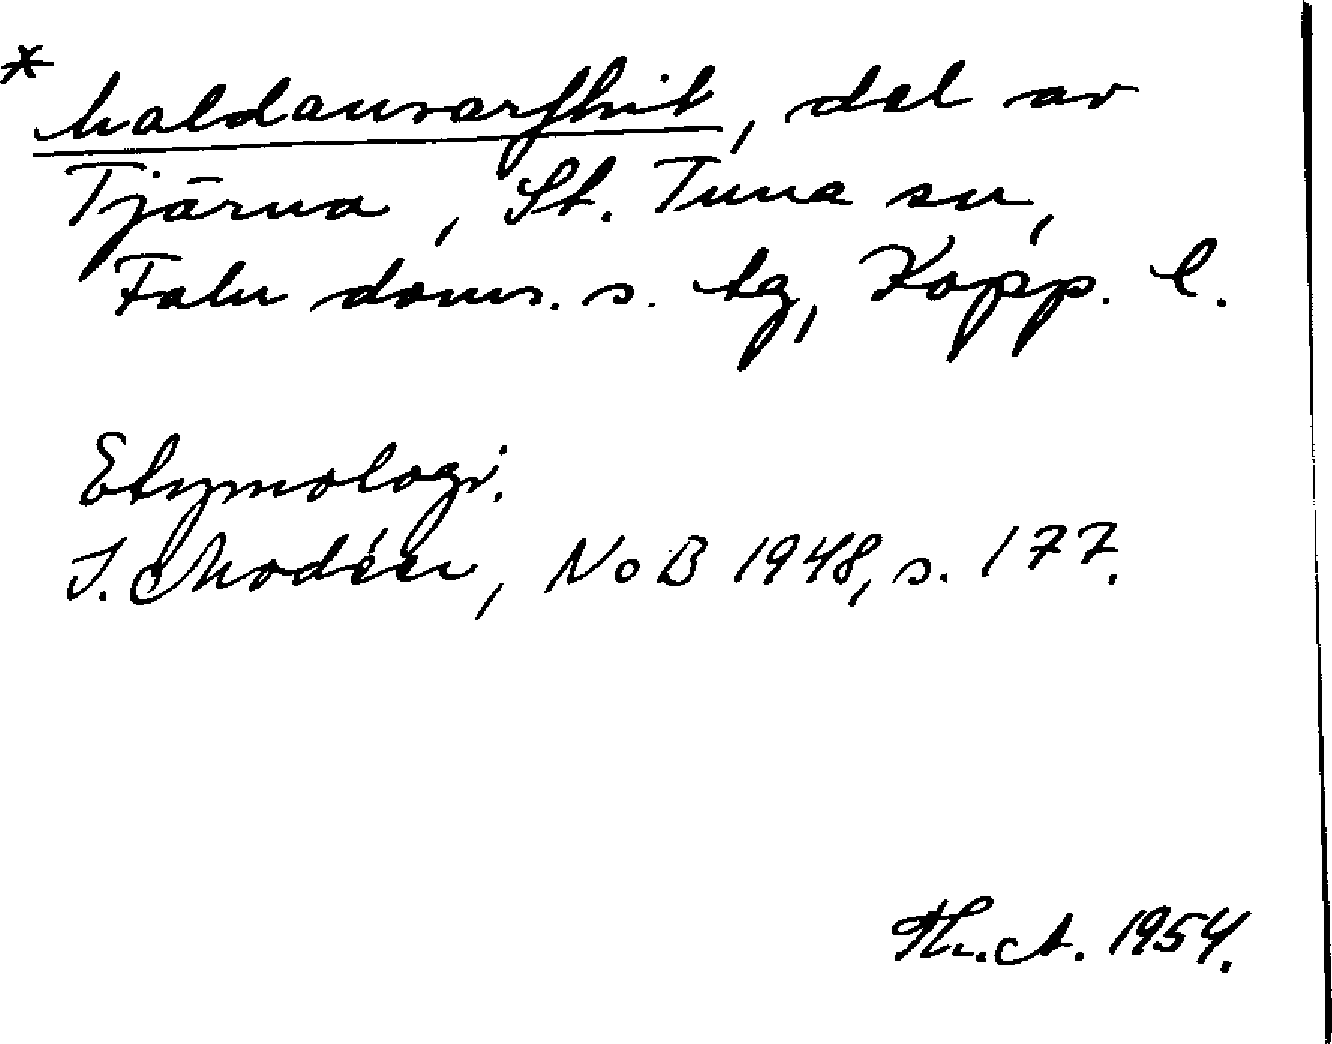 * haldanvarfhit, del av
Tjärna, St. Tuna sn,
Falu doms. s. tg, Kopp. l.
Etymologi.
I. Modéer, NoB 1948, s. 177.
Th. A. 1954.